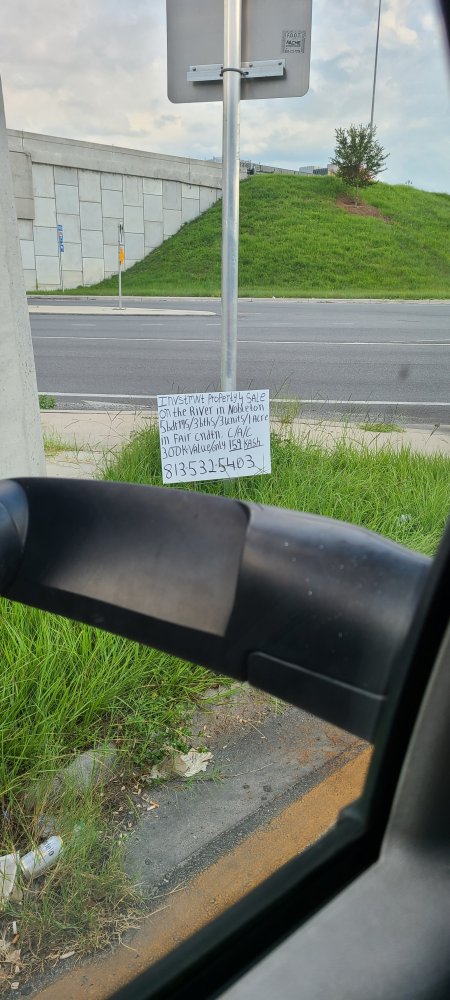 Invstmnt Property 4 SALE
on the River in Nobleton
5bdrms/3bths/3units/1 Acre
in Fair cndtn. C/A/C
300K Value/Only 159 KASh
8135325403